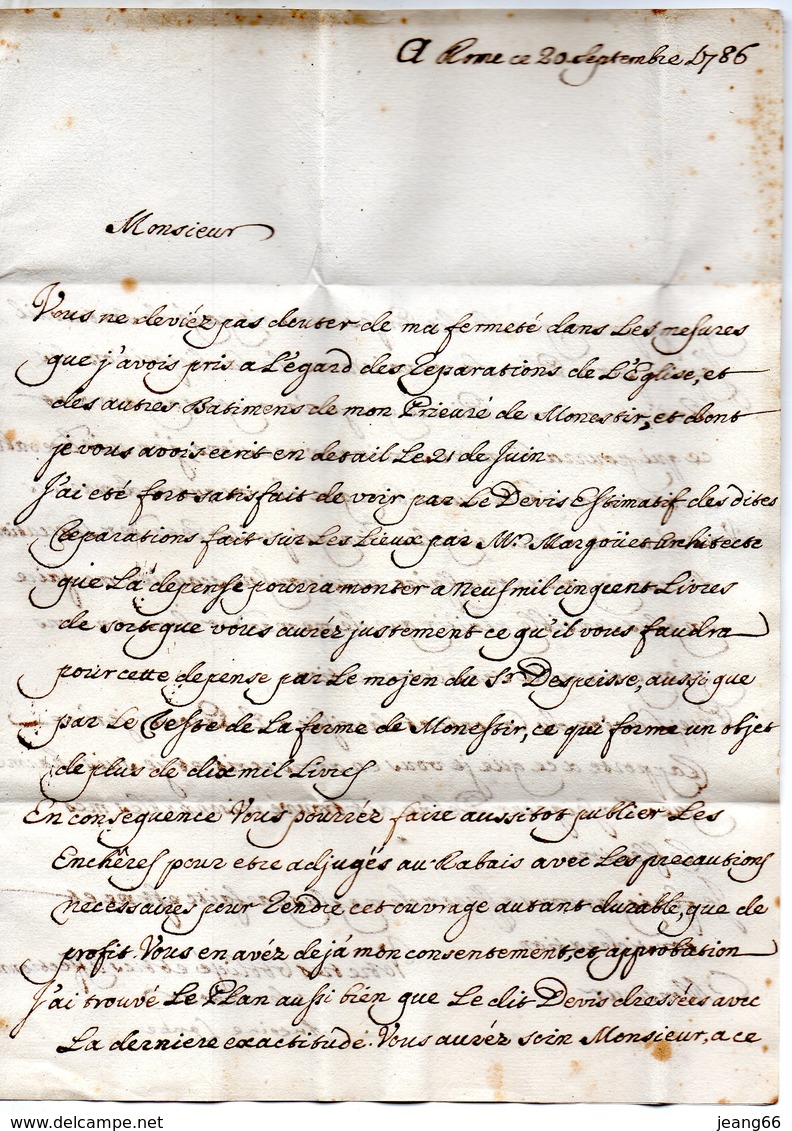 A Rome ce 20 Septembre 1786
Monsieur
Vous ne deviéz pas douter de ma fermeté dans Les mesures
que j'avois pris a L'égard des Reparations de L'Eglise, et
des autres Batimens de mon Prieuré de Monestir, et dont
je vous avois ecrit en detail Le 21 de Juin
J'ai eté fort satisfait de voir par Le Devis Estimatif des dites
Reparations fait sur Les Lieux par Mr. Margoüet Architecte
que La depense pourra monter a neuf mil cinqcent Livres
de sorte que vous auréz justement ce qu'il vous faudra
pour cette depense par Le mojen du Sr. Despeisse, aussi que
par Le Reste de La ferme de Monestir, ce qui forme un objet
de plus de dix mil Livres
En consequence Vous pourréz faire aussitot publier Les
Enchêres pour etre adjugés au Rabais avec Les precautions
necessaires pour Rendre cet ouvrage autant durable, que de
profit. Vous en avéz dejá mon consentement, et approbation
J'ai trouvé Le Plan aussi bien que Le dit Devis dressées avec
La derniere exactitude. Vous auréz soin Monsieur, a ce
jeang66